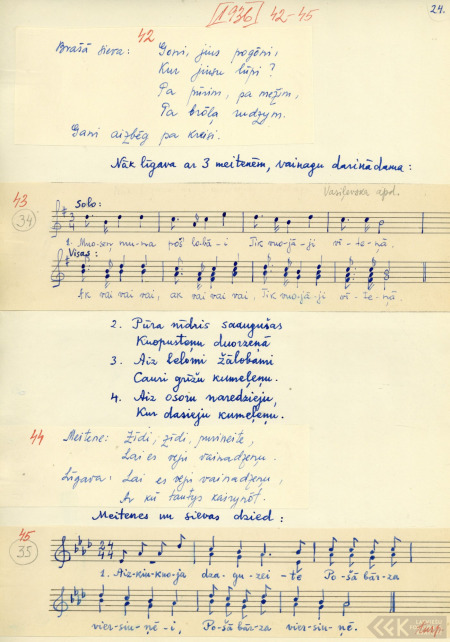 [1936] 42-45
24.
42
Brašā sieva: Goni, jius pogōni,
Kur jiusu lūpi?
Pa pūrim, pa mežim,
Pa brōļa rudzym.
Gani aizbēg pa kreisi.
Nāk līgava ar 3 meitenēm, vainagu darinādama:
43
34
Solo:
1. Muo-seņ mu-ma pōš lo-bā-i Tik vuo-jā-ji vī-te-ņā.
Visas:
Ak vai vai vai, ak vai vai vai, Tik vuo-jā-ji vī-te-ņā.
2. Pūra nīdris saaugušas
Kuopustoņu duorzeņā
3. Aiz belomi žālobami
Cauri grīžu kumeļeņu.
4. Aiz osoru naredzieju,
Kur dasieju kumeļeņu.
44
Meitene: Zīdi, zīdi, purineite,
Lai es veju vainadzeņu.
Līgava: Lai es veju vainadzeņu,
Ar kū tautys kaisynōt.
Meitenes un sievas dzied:
45
35
1. Aiz-kiu-kuo-ja dza-gu-zei-te Po-šā bār-za
vier-siu-ņē-i, Po-šā bār-za vier-siu-ņē.
turp.